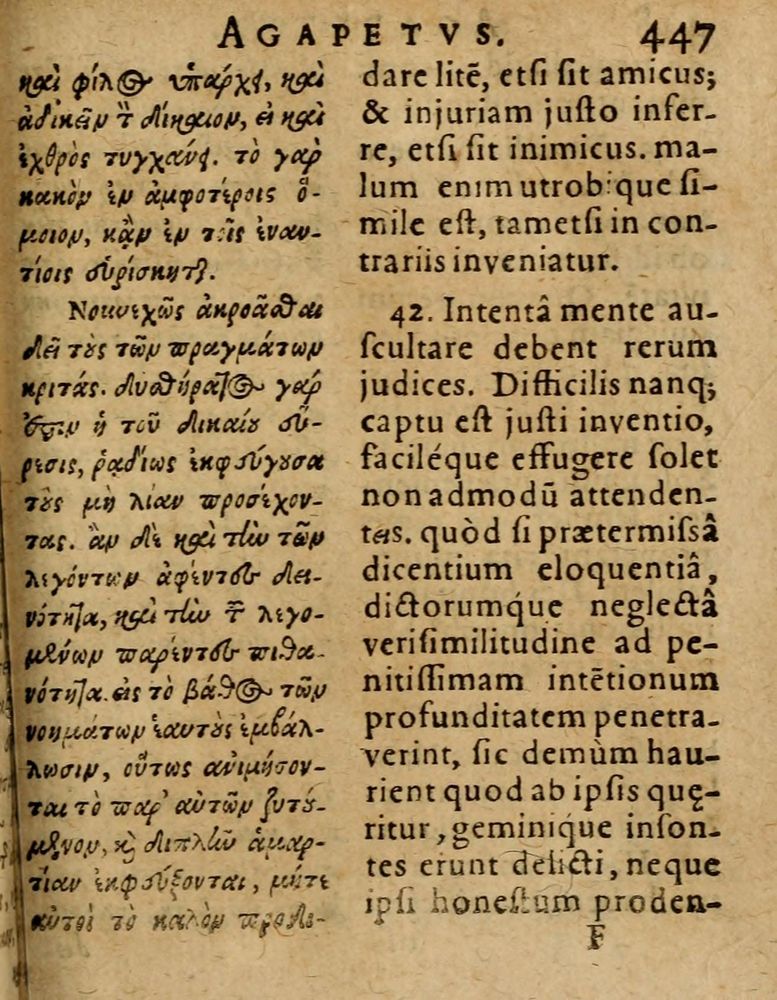 AGAPETVS. 447
καὶ φίλος ὑπάρχει, καὶ
ἀδικεῖν τὸν δίκαιον, εἰ καὶ
ἐχθρὸς τυγχάνει. τὸ γὰρ
κακὸν ἐν ἀμφοτέροις ὅ-
μοιον, κἂν ἐν τοῖς ἐναν-
τίοις εὑρίσκηται.
Νουνεχῶς ἀκροᾶσθαι
δεῖ τοὺς τῶν πραγμάτων
κριτάς. δυσθήρατος γάρ
ἐστιν ἡ τοῦ δικαίου εὕ-
ρεσις, ῥᾳδίως ἐκφεύγουσα
τοὺς μὴ λίαν προσέχον-
τας. ἂν δὲ καὶ τὴν τῶν
λεγόντων ἀφέντες δει-
νότητα, καὶ τὴν τῶν λεγο-
μένων παρέντες πιθα-
νότητα. εἰς τὸ βάθος τῶν
νοημάτων ἑαυτοὺς ἐμβάλ-
λωσιν, οὕτως ἀνιμήσον-
ται τὸ παρ' αὐτῶν ζητού-
μενον, καὶ διπλῆν ἁμαρ-
τίαν ἐκφεύξονται, μήτε
αὐτοὶ τὸ καλὸν προδι-
dare litē, etſi ſit amicus;
& injuriam juſto infer-
re, etſi ſit inimicus. ma-
lum enim utrobique ſi-
mile eſt, tametſi in con-
trariis inveniatur.
42. Intentâ mente au-
ſcultare debent rerum
judices. Difficilis nanq;
captu eſt juſti inventio,
faciléque effugere ſolet
non admodū attenden-
tes. quòd ſi prætermiſsâ
dicentium eloquentiâ,
dictorumq́ue neglectâ
veriſimilitudine ad pe-
nitiſſimam intētionum
profunditatem penetra-
verint, ſic demùm hau-
rient quod ab ipſis quę-
ritur, geminiq́ue inſon-
tes erunt delicti, neque
ipſi honeſtum proden-
F